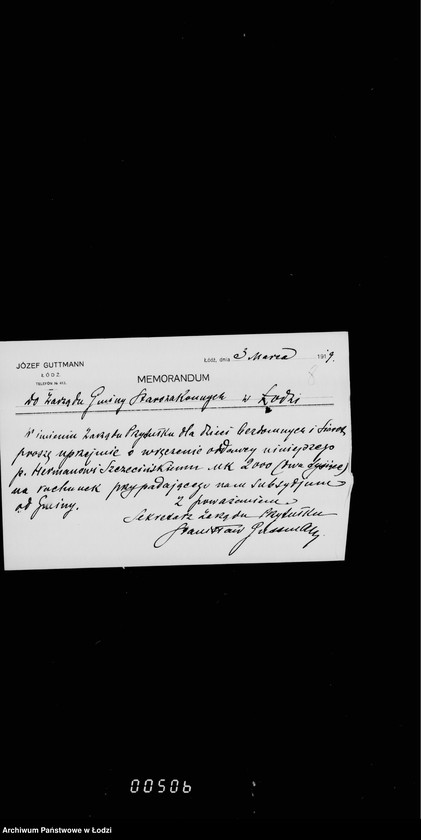 JÓZEF GUTTMANN
ŁÓDŹ.
TELEFON №
Łódź, dnia 3 Marca 1919.
8
MEMORANDUM
Do Zarządu Gminy Starozakonnych w Łodzi
W imieniu Zarządu Przytułku dla dzieci bezdomnych i Sierot
proszę uprzejmie o wręczenie oddawcy niniejszego
p. Hermanowi Szczecińskiemu mk 2000 (dwa tysiące)
na rachunek przypadającego nam subsydjum
od Gminy.
Z poważaniem
Sekretarz Zarządu Przytułku
Stanisław
00506
Archiwum Państwowe w Łodzi